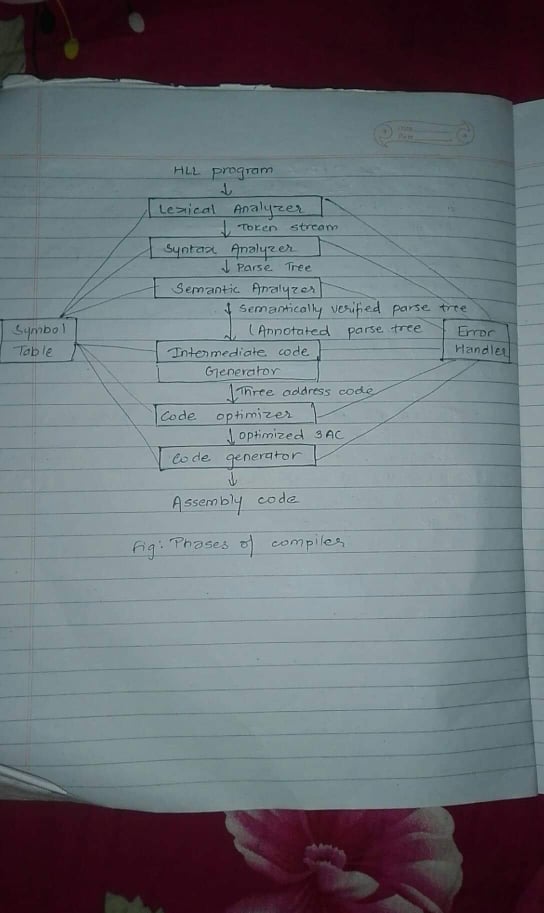 HLL program
Lexical Analyzer
Token stream
Syntax Analyzer
Parse Tree
Semantic Analyzer
Semantically verified parse tree
(Annotated parse tree
Symbol
Table
Error
Handler
Intermediate code
Generator
Three address code
Code optimizer
optimized 3AC
Code generator
Assembly code
Fig: Phases of compiler